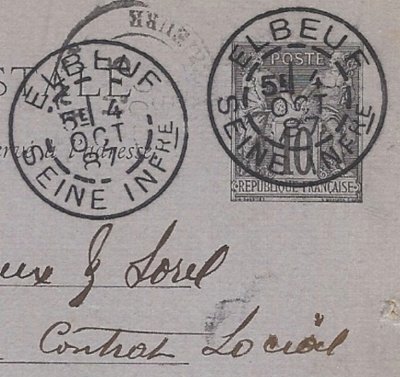 ELBEUF
5E 4
OCT
87
SEINE INFRE
ELBEUF
5E 4
OCT
87
SEINE INFRE
POSTE
10
REPUBLIQUE FRANÇAISE
STALE
l'adresse
& Sorel
Contrat Social